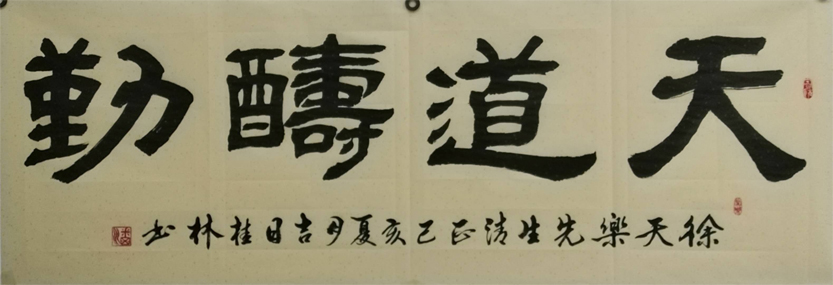 天道醻勤
徐天樂先生清正己亥夏月吉日桂林书